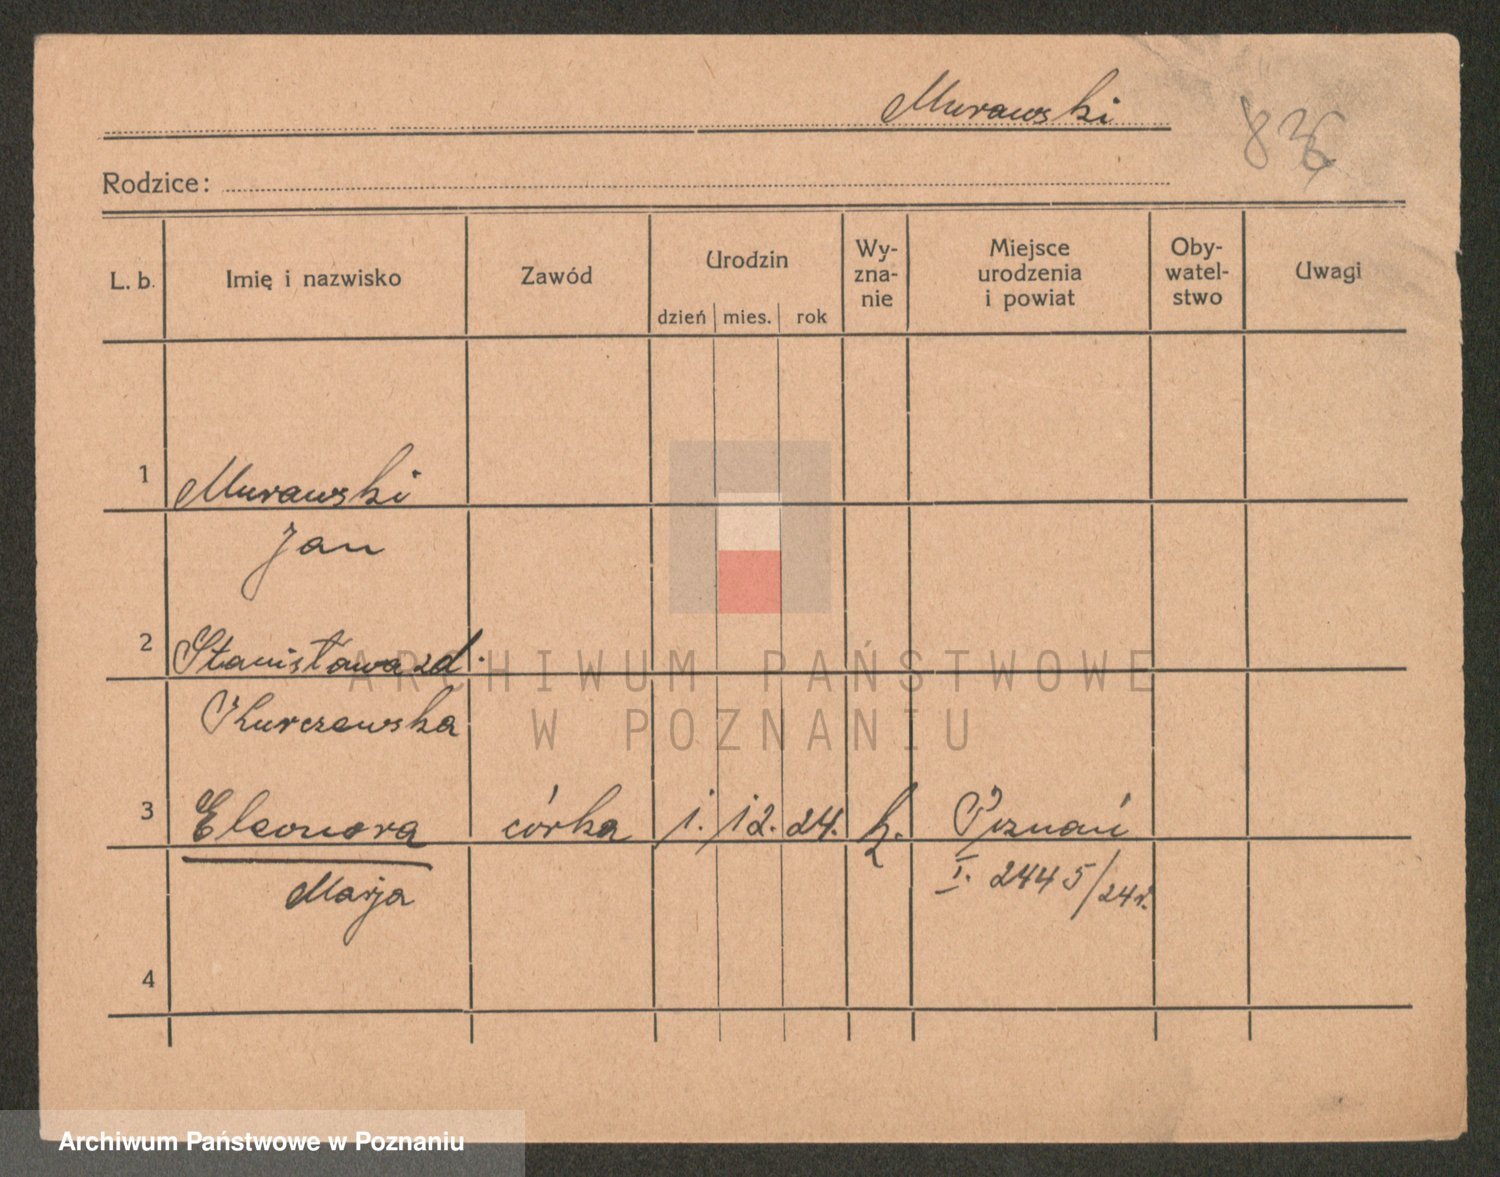 Murawski
836
Rodzice:
L. b. Imię i nazwisko Zawód Urodzin Wy-zna-nie Miejsce urodzenia i powiat Oby-watel-stwo Uwagi
dzień mies. rok
1 Murawski
Jan
2 Stanisława zd.
Kurczewska
3 Eleonora córka 1. 12. 24. k. Poznań
Marja I. 2445/24r.
4
ARCHIWUM PAŃSTWOWE
W POZNANIU
Archiwum Państwowe w Poznaniu